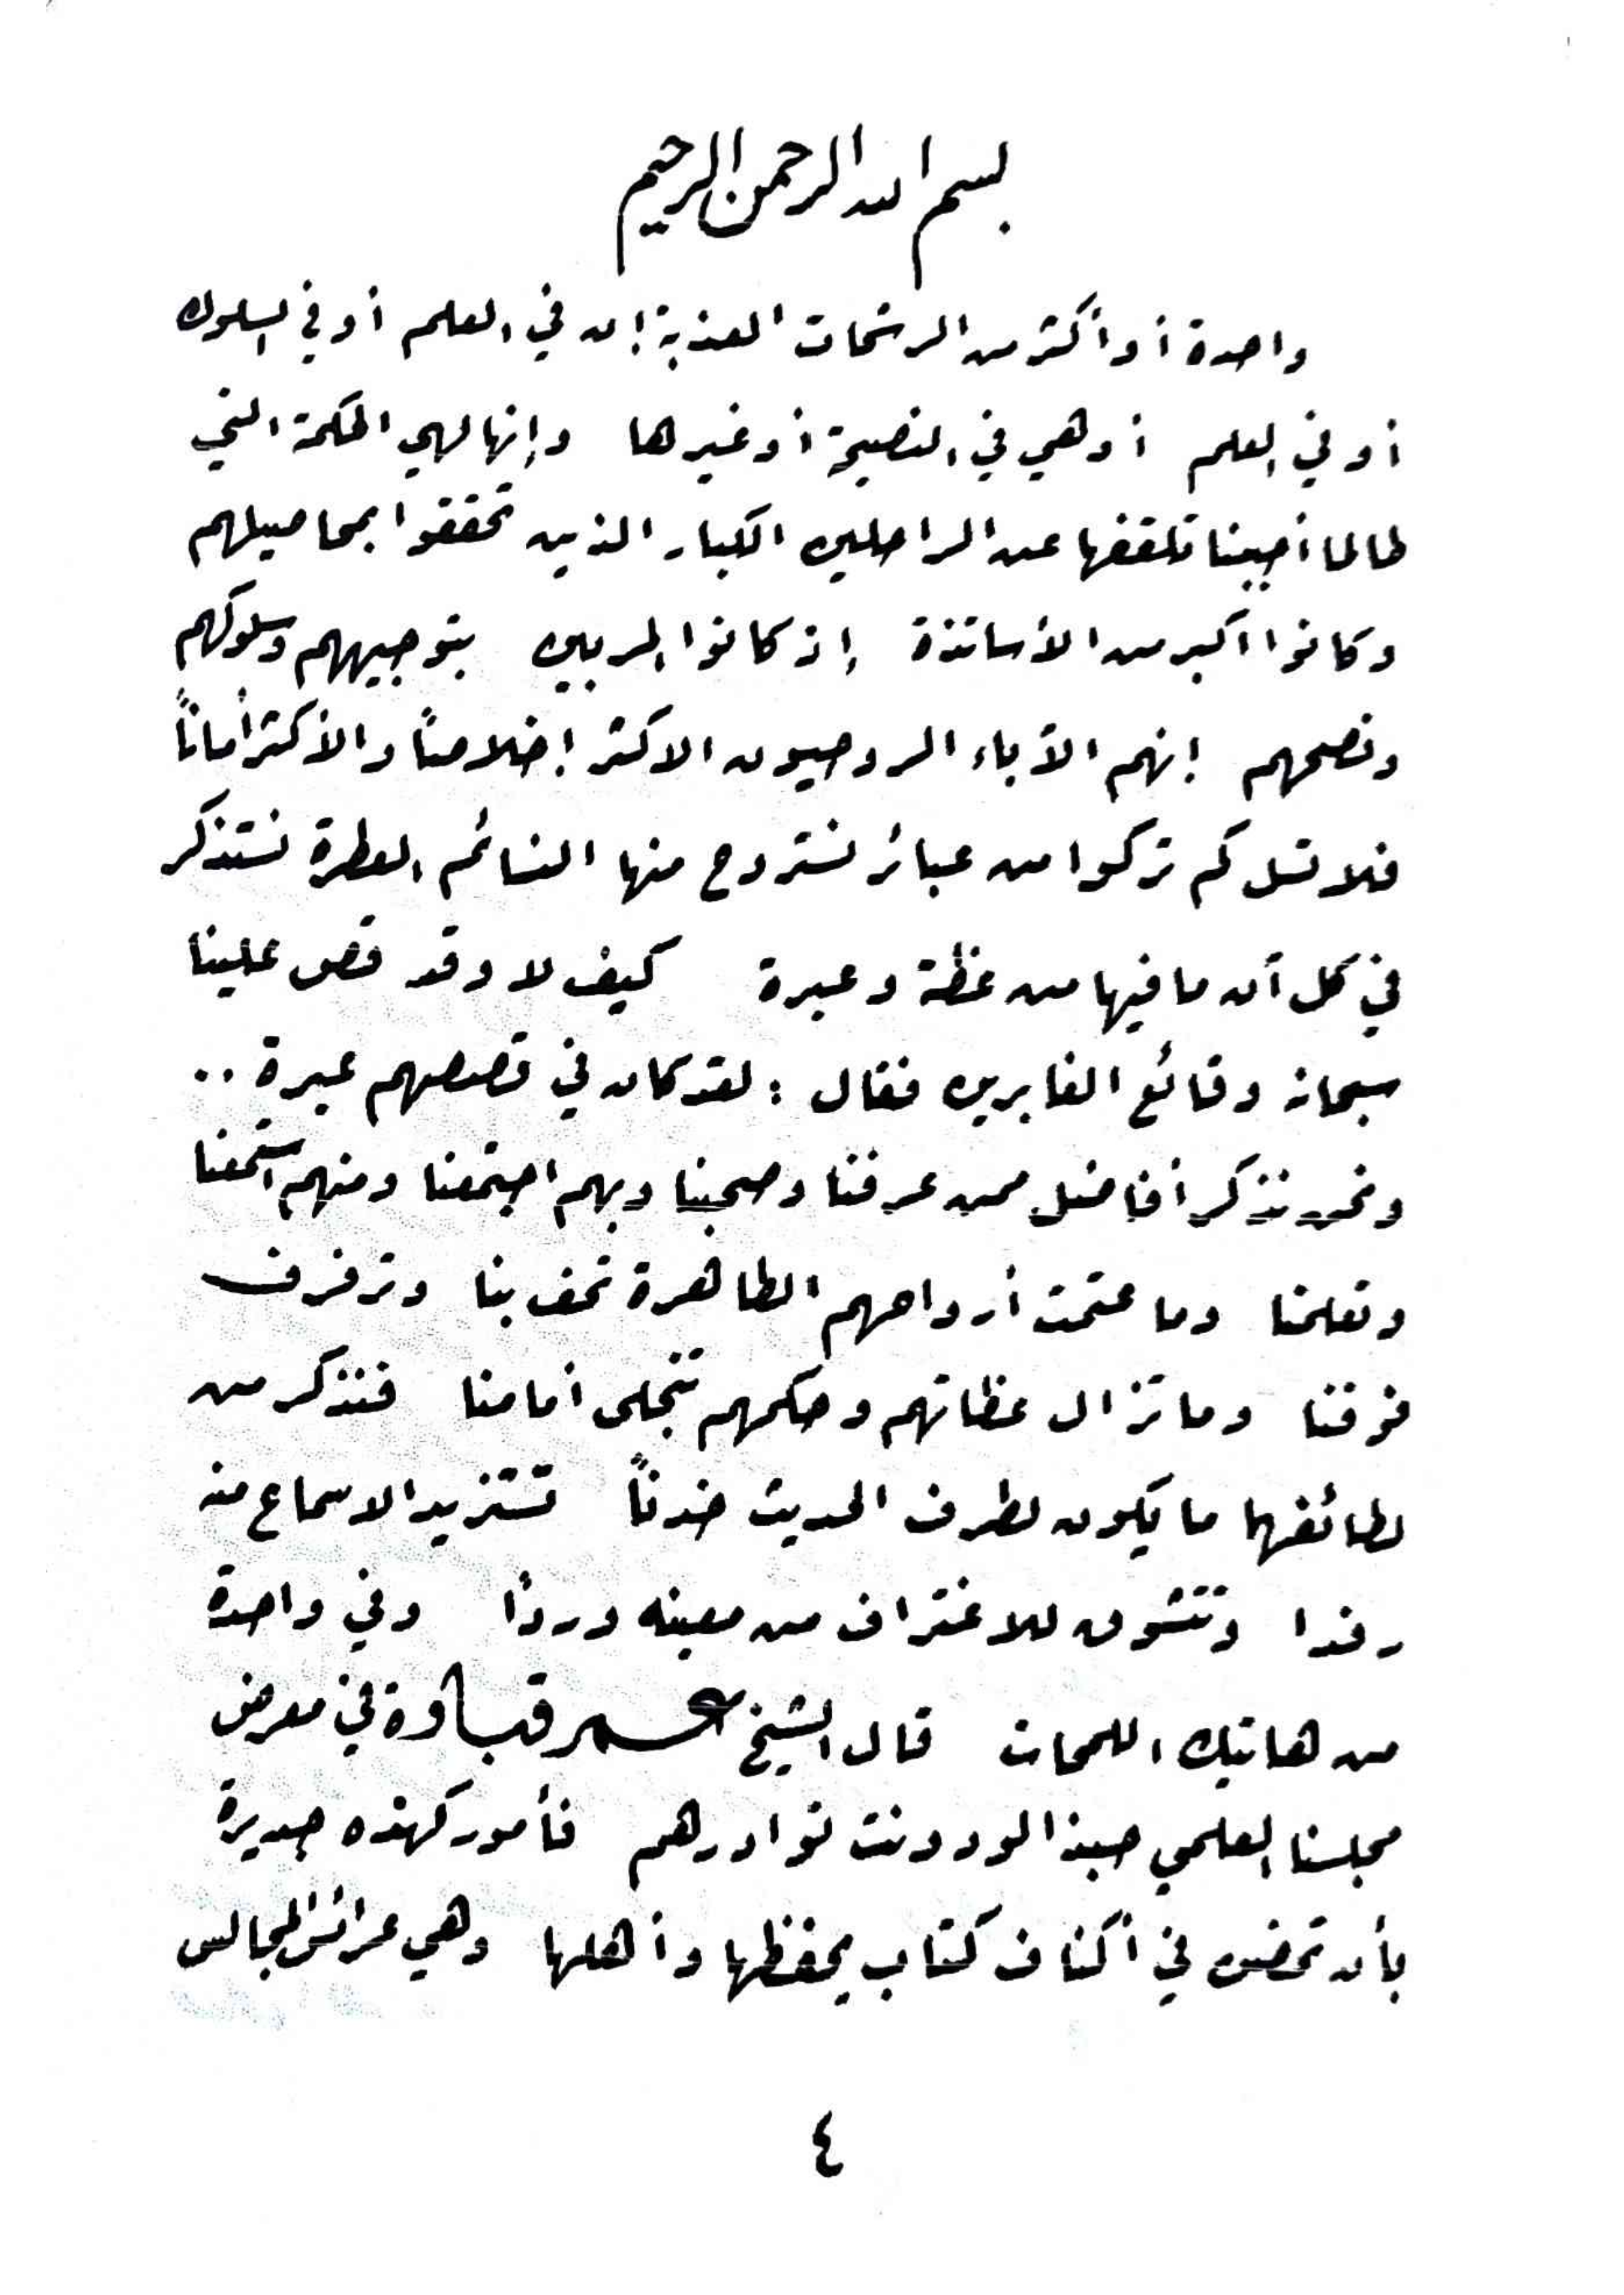 بسم الله الرحمن الرحيم
واحدة أو أكثر من الرشحات العذبة إن في العلم أو في السلوك
أو في العلم أو هي في النصيحة أو غيرها وإنها لهي الحكمة التي
طالما أحببنا تلقفها عن الراحلين الكبار الذين تحققوا بمحاصيلهم
وكانوا أكبر من الأساتذة إذ كانوا المربين بتوجيههم وسلوكهم
ونصحهم إنهم الآباء الروحيون الاكثر إخلاصاً والأكثر أماناً
فلا تسل كم تركوا من عبائر نستروح منها النسائم العطرة نستذكر
في كل آن ما فيها من عظة وعبرة كيف لا وقد قص علينا
سبحانه وقائع الغابرين فقال : لقد كان في قصصهم عبرة ..
ونحن نذكر أفاضل ممن عرفنا وصحبنا وبهم اجتمعنا ومنهم استمعنا
وتعلمنا وما عتمت أرواحهم الطاهرة تحف بنا وترفرف
فوقنا وما تزال عظاتهم وحكمهم تتجلى أمامنا فنذكر من
لطائفها ما يكون لطرف الحديث خدناً تستزيد الاسماع منه
رفدا وتتشوق للاغتراف من معينه وردأ وفي واحدة
من هاتيك اللمحات قال الشيخ عمر قباوة في معرض
مجلسنا العلمي حبذا لو دونت نوادرهم فأمور كهذه جديرة
بأن تحضن في أكناف كتاب يحفظها وأهلها وهي عرائس المجالس
٤